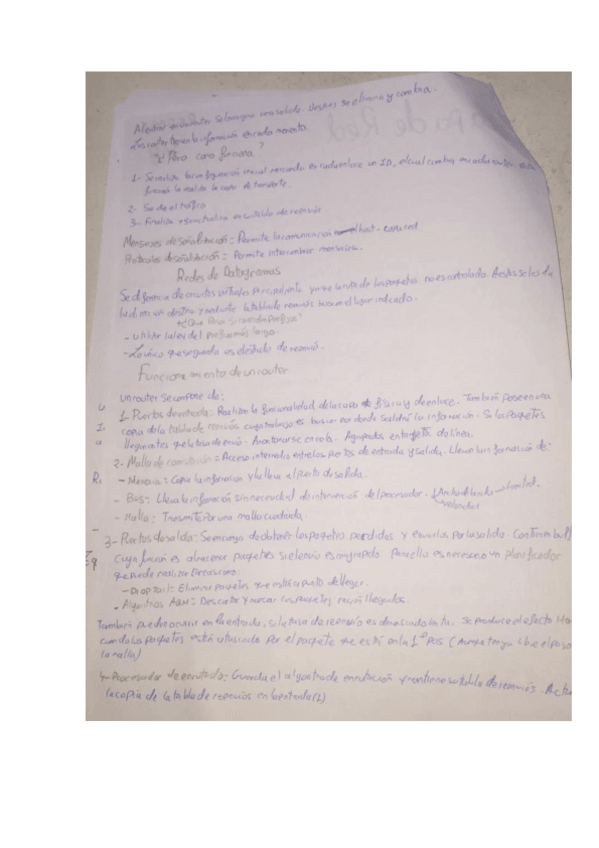 Al entrar un router Se le asigna una salida. Despues se elimina y cambia.
Los router tienen la información en cada momento
¿Pero como funciona?
1- Se realiza la configuración inicial marcando en cada enlace un ID, el cual cambia en cada router. esta
función la realiza la capa de transporte.
2- Se da el tráfico
3- Finaliza y se actualiza en su tabla de reenvío
Mensajes de señalización = Permite la comunicación host - red
Protocolos de señalización = Permite intercambiar mensajes.
Redes de Datagramas
Se diferencia de circuitos virtuales ya que la ruta de los paquetes no es controlada. A estos se les da
un destino y mediante la tabla de reenvío buscan el lugar indicado.
¿Que Pasa si coinciden prefijos?
- Utilizar la ley del prefijo más largo.
- Lo único que se guarda es el estado de reenvío.
Funcionamiento de un router
Un router se compone de:
1. Puertos de entrada: Realizan la funcionalidad de la capa física y de enlace. También poseen una
copia de la tabla de reenvío cuyo trabajo es buscar por donde saldrá la información. Si los paquetes
llegan antes que la tasa de envío - Amontonarse en cola. Agrupados en tarjetas de línea.
2- Malla de conmutación = Acceso intermedio entre los puertos de entrada y salida. Lleva la información de:
- Memoria = Copia la información y la lleva al puerto de salida.
- Bus = Lleva la información sin necesidad de intervención del procesador. Ancho de banda limitad.
velocidad
- Malla: Transmite por una malla cuadrada
3- Puertos de salida: Se encarga de obtener los paquetes perdidos y enviarlos por la salida. Contienen buff
cuya función es almacenar paquetes si el envío es ocupado. Para ello es necesario un planificador
que puede realizar dos acciones:
- Drop tail: Elimina paquetes que están a punto de llegar.
. Algoritmos AQM = Descartar y marcar los paquetes recién llegados.
También puede ocurrir en la entrada, si la tasa de reenvío es demasiado lenta. Se produce el efecto HO
cuando los paquetes están atascados por el paquete que está en la 1ª pos (Aunque tenga libre el paso
la malla)
4- Procesador de enrutado: Guarda el algoritmo de enrutación y contiene su tabla de reenvíos. Actu
la copia de la tabla de reenvíos en la entrada (1)